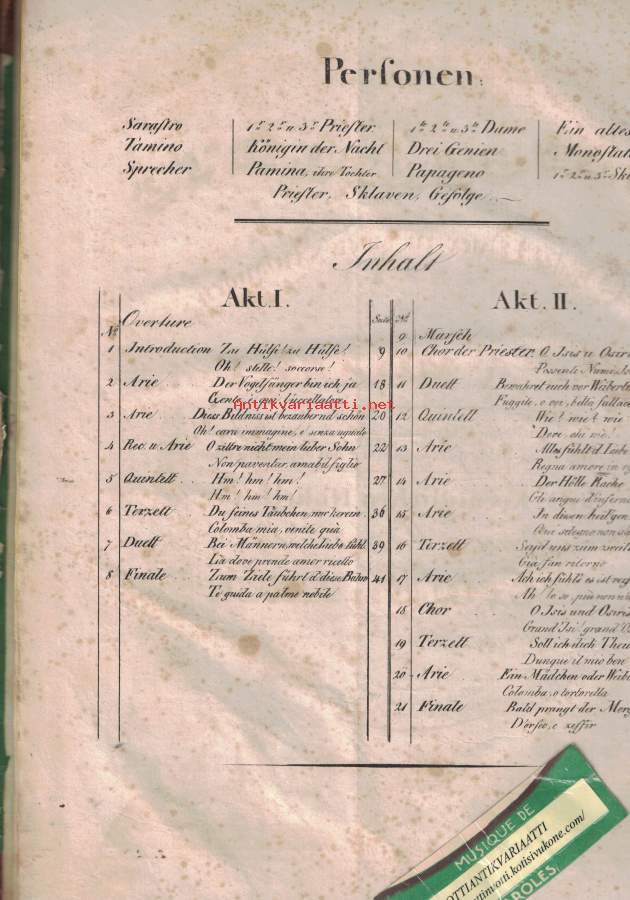 Personen.
Sarastro 1r 2r u. 3r Priester. 1te 2te u. 3te Dame Ein altes
Tamino Königin der Nacht Drei Genien Monostat
Sprecher Pamina, ihre Tochter Papageno 1r 2r u. 3r Skl
Priester, Sklaven, Gefolge.
Inhalt
Akt. I.
No. Overture Seite
1 Introduction Zu Hülfe! zu Hülfe! 9
Oh! stelle! soccorso!
2 Arie Der Vogelfänger bin ich ja 18
3 Arie Dies Bildniss ist bezaubernd schön 20
Oh! cara immagine,
4 Rec. u. Arie O zittre nicht mein lieber Sohn 22
Non paventar, amabil figlio
5 Quintett Hm! hm! hm! 27
Hm! hm! hm!
6 Terzett Du feines Täubchen, nur herein 36
Colomba mia, venite quà
7 Duett Bei Männern, welche Liebe fühl. 39
Là dove prende amor ricetto
8 Finale Zum Ziele führt d. diese Bahn 41
Te guida a palme nobile
Akt. II.
No.
9 Marsch
10 Chor der Priester. O Isis u Osiri
Possente Nume
11 Duett Bewahret euch vor Weibertü
Fuggite, o voi, beltà fallac
12 Quintett Wie! wie! wie
Dove, ohi viè!
13 Arie Alles fühlt d. Liebe
Regna amore in
14 Arie Der Hölle Rache
Gli angui d'inferno
15 Arie In diesen heil'gen
16 Terzett Seyd uns zum zweite
Già fan ritorno
17 Arie Ach ich fühl's es ist vers
Ah! lo so, più non
18 Chor O Isis und Osiris
Grand' Isi! grand' O
19 Terzett Soll ich dich Theu
Dunque il mio ben
20 Arie Ein Mädchen oder Weib
Colomba, o tortorella
21 Finale Bald prangt der Morg
D'orfeo, e zeffir
Antikvariaatti.com
MUSIQUE DE
OTTIANTIKVARIAATTI
ttinvotti.kotisivukone.com/
ROLES.